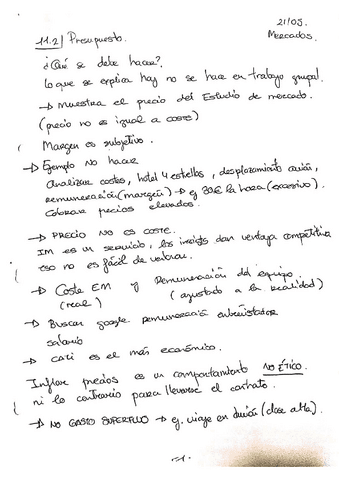 21/05.
Mercados.
11.2/ Presupuesto.
¿Qué se debe hacer?
Lo que se explica hoy no se hace en trabajo grupal.
→ Muestra el precio del Estudio de mercado.
(precio no es igual a coste)
Margen es subjetivo.
→ Ejemplo NO hacer
Analizar costes, hotel 4 estrellas, desplazamiento avión,
remuneración (margen) → eg 30€ la hora (excesivo).
Colocar precios elevados.
→ PRECIO NO ES COSTE.
IM es un servicio, los insights dan ventaja competitiva
eso no es fácil de valorar.
→ Coste EM y Remuneración del equipo
(real) (ajustado a la realidad)
→ Buscar google remuneración entrevistador
salario
→ CATI es el más económico.
Inflar precios es un comportamiento NO ÉTICO.
ni lo contrario para llevarse el contrato.
→ NO GASTO SUPERFLUO → eg. viaje en avión (clase alta).
-1-